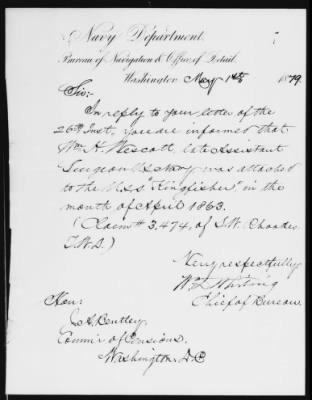 Navy Department.
Bureau of Navigation & Office of Detail.
Washington May 1st 1879.
Sir:-
In reply to your letter of the
26th Inst, you are informed that
Wm H. Wescott, late Assistant
Surgeon U.S. Navy was attached
to the U.S.S. "Kingfisher" in the
month of April 1863.
(Claim # 3,474, of S.W. Rhoades
Very respectfully
Whiting
Chief of Bureau.
Hon:
A. Bentley,
Commr of Pensions.
Washington, D.C